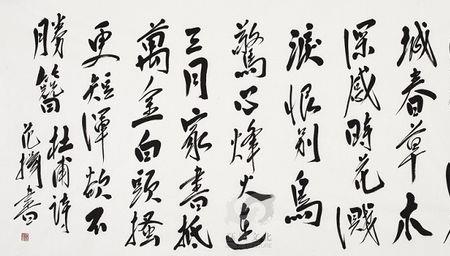 城春草木
深感時花濺
淚恨別鳥
驚心烽火連
三月家書抵
萬金白頭搔
更短渾欲不
勝簪
杜甫詩
書